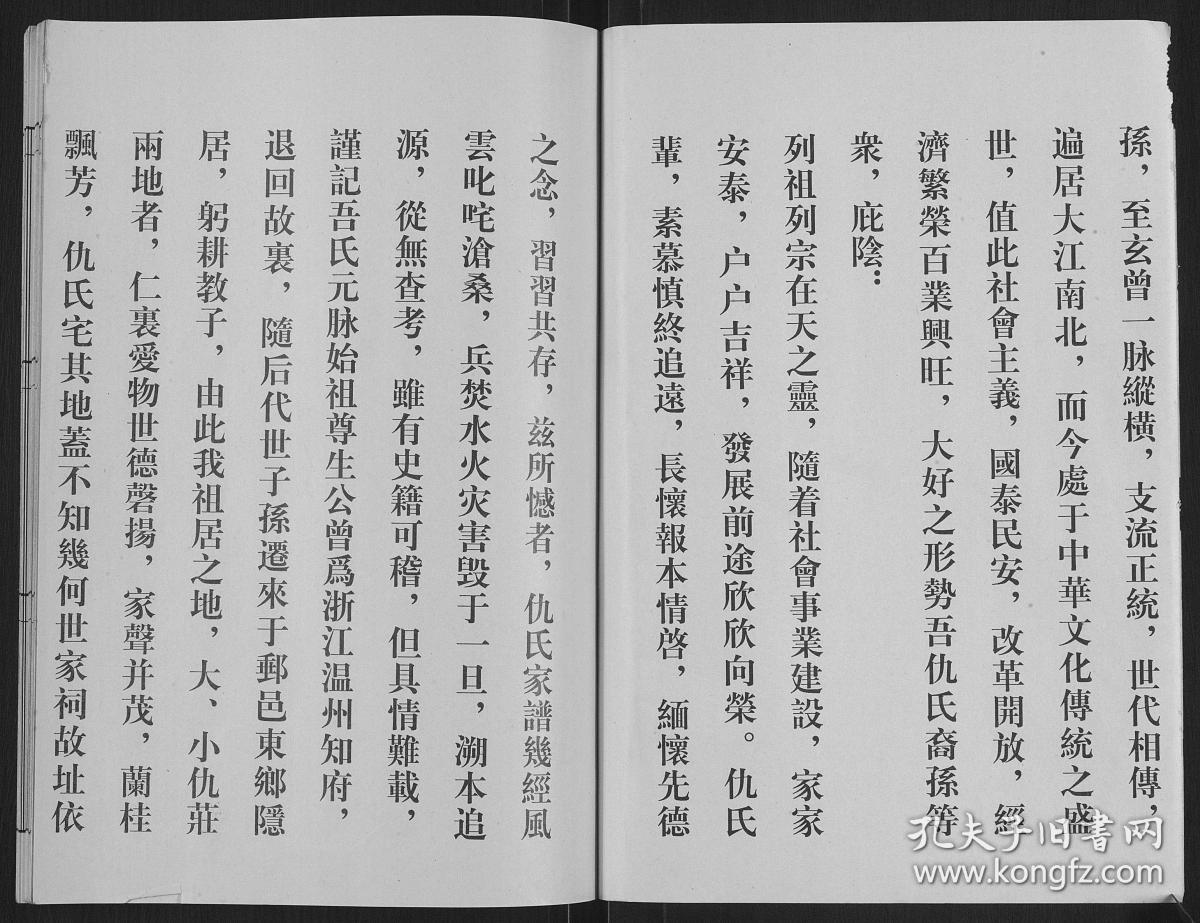 孫，至玄曾一脉縱橫，支流正統，世代相傳，
遍居大江南北，而今處于中華文化傳統之盛
世，值此社會主義，國泰民安，改革開放，經
濟繁榮百業興旺，大好之形勢吾仇氏裔孫等
衆，庇陰：
列祖列宗在天之靈，隨着社會事業建設，家家
安泰，户户吉祥，發展前途欣欣向榮。仇氏
輩，素慕慎終追遠，長懷報本情啓，緬懷先德
之念，習習共存，兹所憾者，仇氏家譜幾經風
雲叱咤滄桑，兵焚水火灾害毁于一旦，溯本追
源，從無查考，雖有史籍可稽，但具情難載，
謹記吾氏元脉始祖尊生公曾爲浙江温州知府，
退回故裏，隨后代世子孫遷來于郵邑東鄉隱
居，躬耕教子，由此我祖居之地，大、小仇莊
兩地者，仁裏愛物世德磬揚，家聲并茂，蘭桂
飄芳，仇氏宅其地蓋不知幾何世家祠故址依
孔夫子旧書网
www.kongfz.com